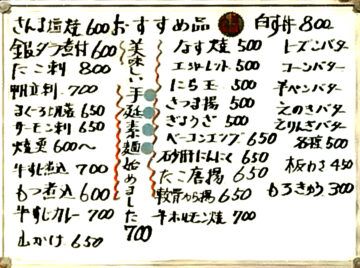 さんま塩焼 600
銀ダラ煮付 600
たこ刺 800
帆立刺 700
まぐろ山かけ 650
サーモン刺 650
焼魚 600〜
牛すじ煮込 700
もつ煮込 600
牛すじカレー 700
山かけ 650
おすすめ品
美味しい手延素麺始めました
700
なす焼 500
エシャレット 500
にら玉 500
さつま揚 500
ぎょうざ 500
ベーコンエッグ 650
砂肝にんにく 650
たこ唐揚 650
軟骨から揚 650
牛ホルモン焼 700
白す丼 800
コーンバター
えのきバター
エリンギバター
各種 500
板わさ 450
もろきゅう 300